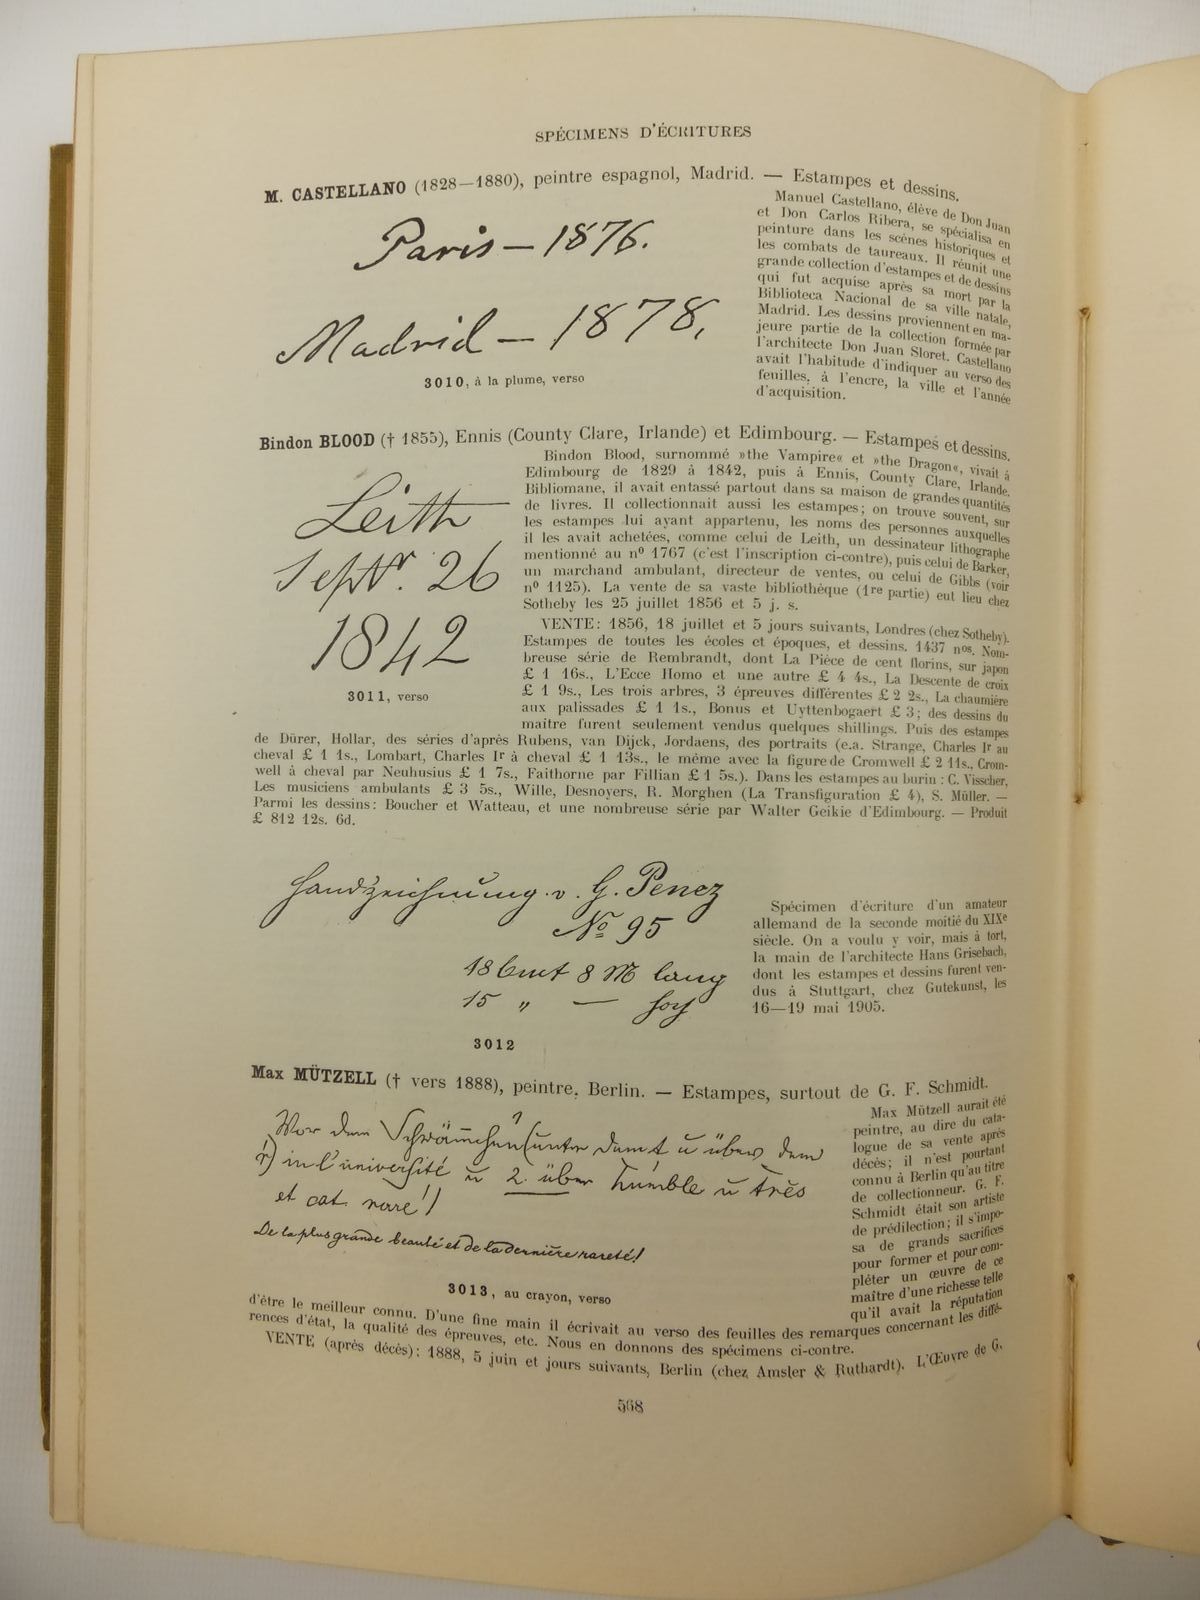 SPÉCIMENS D'ÉCRITURES
M. CASTELLANO (1828—1880), peintre espagnol, Madrid. — Estampes et dessins.
Paris — 1876.
Madrid — 1878.
3010, à la plume, verso
Manuel Castellano, élève de Don Juan
et Don Carlos Ribera, se spécialisa en
peinture dans les scènes historiques et
les combats de taureaux. Il réunit une
grande collection d'estampes et de dessins
qui fut acquise après sa mort par la
Biblioteca Nacional de sa ville natale,
Madrid. Les dessins proviennent en ma-
jeure partie de la collection formée par
l'architecte Don Juan Sloret. Castellano
avait l'habitude d'indiquer au verso des
feuilles, à l'encre, la ville et l'année
d'acquisition.
Bindon BLOOD († 1855), Ennis (County Clare, Irlande) et Edimbourg. — Estampes et dessins.
Leith
Septr. 26
1842
3011, verso
Bindon Blood, surnommé »the Vampire« et »the Dragon«, vivait à
Edimbourg de 1829 à 1842, puis à Ennis, County Clare, Irlande.
Bibliomane, il avait entassé partout dans sa maison de grandes quantités
de livres. Il collectionnait aussi les estampes; on trouve souvent, sur
les estampes lui ayant appartenu, les noms des personnes auxquelles
il les avait achetées, comme celui de Leith, un dessinateur lithographe
mentionné au nº 1767 (c'est l'inscription ci-contre), puis celui de Barker,
un marchand ambulant, directeur de ventes, ou celui de Gibbs (voir
nº 1125). La vente de sa vaste bibliothèque (1re partie) eut lieu chez
Sotheby les 25 juillet 1856 et 5 j. s.
VENTE: 1856, 18 juillet et 5 jours suivants, Londres (chez Sotheby).
Estampes de toutes les écoles et époques, et dessins. 1437 nos. Nom-
breuse série de Rembrandt, dont La Pièce de cent florins, sur japon
£ 1 16s., L'Ecce Homo et une autre £ 4 4s., La Descente de croix
£ 1 9s., Les trois arbres, 3 épreuves différentes £ 2 2s., La chaumière
aux palissades £ 1 1s., Bonus et Uyttenbogaert £ 3; des dessins du
maître furent seulement vendus quelques shillings. Puis des estampes
de Dürer, Hollar, des séries d'après Rubens, van Dijck, Jordaens, des portraits (e.a. Strange, Charles Ir au
cheval £ 1 1s., Lombart, Charles Ir à cheval £ 1 13s., le même avec la figure de Cromwell £ 2 11s., Crom-
well à cheval par Neuhusius £ 1 7s., Faithorne par Fillian £ 1 5s.). Dans les estampes au burin: C. Visscher,
Les musiciens ambulants £ 3 5s., Wille, Desnoyers, R. Morghen (La Transfiguration £ 4), S. Müller. —
Parmi les dessins: Boucher et Watteau, et une nombreuse série par Walter Geikie d'Edimbourg. — Produit
£ 812 12s. 6d.
Handzeichnung v. G. Pencz
No 95
18 Cmt 8 M lang
15 „ — hoch
3012
Spécimen d'écriture d'un amateur
allemand de la seconde moitié du XIXe
siècle. On a voulu y voir, mais à tort,
la main de l'architecte Hans Grisebach,
dont les estampes et dessins furent ven-
dus à Stuttgart, chez Gutekunst, les
16—19 mai 1905.
Max MÜTZELL († vers 1888), peintre, Berlin. — Estampes, surtout de G. F. Schmidt.
Vor dem Schwämchen (unter dem t u über dem
r) in l'université u 2. über humble u très
et cat. rare!)
De la plus grande beauté et de la dernière rareté!
3013, au crayon, verso
Max Mützell aurait été
peintre, au dire du cata-
logue de sa vente après
décès; il n'est pourtant
connu à Berlin qu'au titre
de collectionneur. G. F.
Schmidt était son artiste
de prédilection; il s'impo-
sa de grands sacrifices
pour former et pour com-
pléter un œuvre de ce
maître d'une richesse telle
qu'il avait la réputation
d'être le meilleur connu. D'une fine main il écrivait au verso des feuilles des remarques concernant les diffé-
rences d'état, la qualité des épreuves, etc. Nous en donnons des spécimens ci-contre.
VENTE (après décès): 1888, 5 juin et jours suivants, Berlin (chez Amsler & Ruthardt). L'Œuvre de G.
568